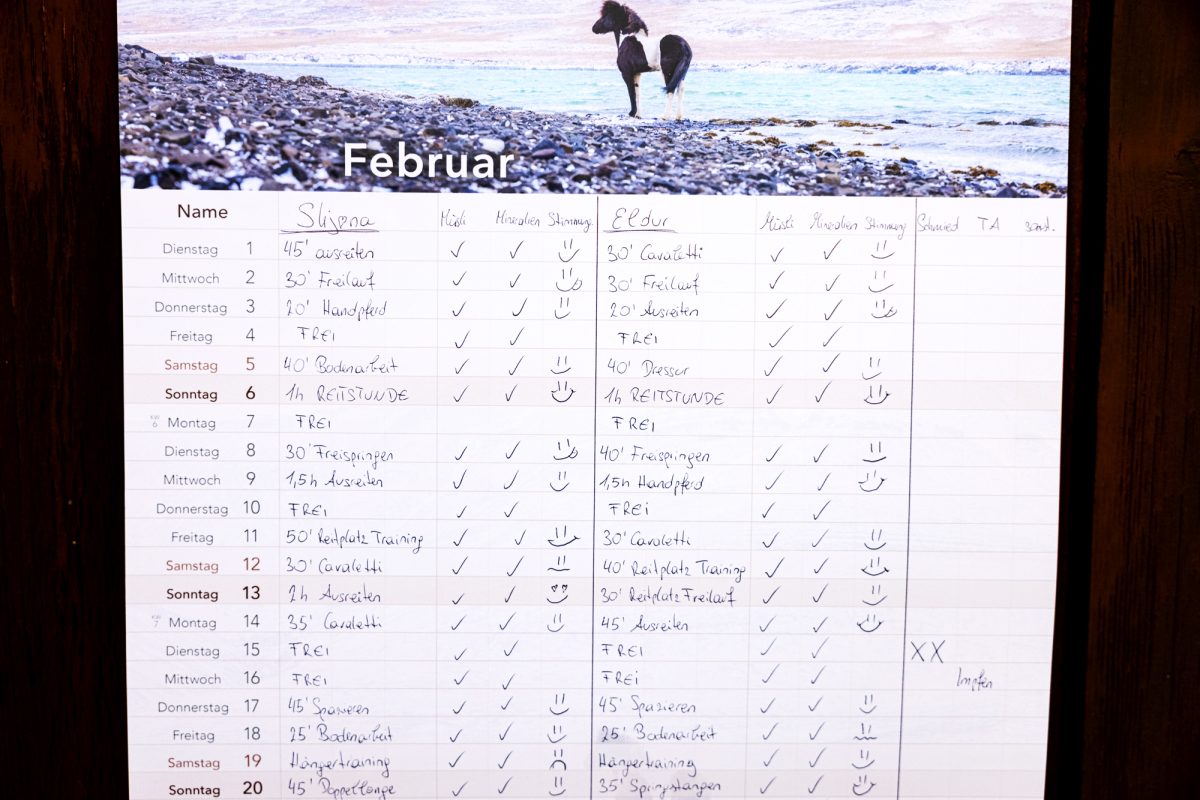 Februar
Name Müsli Mineralien Stimmung Eldur Müsli Mineralien Stimmung Schmied TA sonst.
Dienstag 1 45' ausreiten ✓ ✓ 30' Cavaletti ✓ ✓
Mittwoch 2 30' Freilauf ✓ ✓ 30' Freilauf ✓ ✓
Donnerstag 3 20' Handpferd ✓ ✓ 20' Ausreiten ✓ ✓
Freitag 4 FREI ✓ ✓ FREI ✓ ✓
Samstag 5 40' Bodenarbeit ✓ ✓ 40' Dressur ✓ ✓
Sonntag 6 1h REITSTUNDE ✓ ✓ 1h REITSTUNDE ✓ ✓
KW 6 Montag 7 FREI FREI
Dienstag 8 30' Freispringen ✓ ✓ 40' Freispringen ✓ ✓
Mittwoch 9 1,5h Ausreiten ✓ ✓ 1,5h Handpferd ✓ ✓
Donnerstag 10 FREI ✓ ✓ FREi ✓ ✓
Freitag 11 50' Reitplatz Training ✓ ✓ 30' Cavaletti ✓ ✓
Samstag 12 30' Cavaletti ✓ ✓ 40' Reitplatz Training ✓ ✓
Sonntag 13 2h Ausreiten ✓ ✓ 30' Reitplatz Freilauf ✓ ✓
KW 7 Montag 14 35' Cavaletti ✓ ✓ 45' Ausreiten ✓ ✓
Dienstag 15 FREI ✓ ✓ FREI ✓ ✓ XX
Mittwoch 16 FREI ✓ ✓ FREI ✓ ✓ Impfen
Donnerstag 17 45' Spazieren ✓ ✓ 45' Spazieren ✓ ✓
Freitag 18 25' Bodenarbeit ✓ ✓ 25' Bodenarbeit ✓ ✓
Samstag 19 Hängertraining ✓ ✓ Hängertraining ✓ ✓
Sonntag 20 45' Doppellonge ✓ ✓ 35' Springstangen ✓ ✓